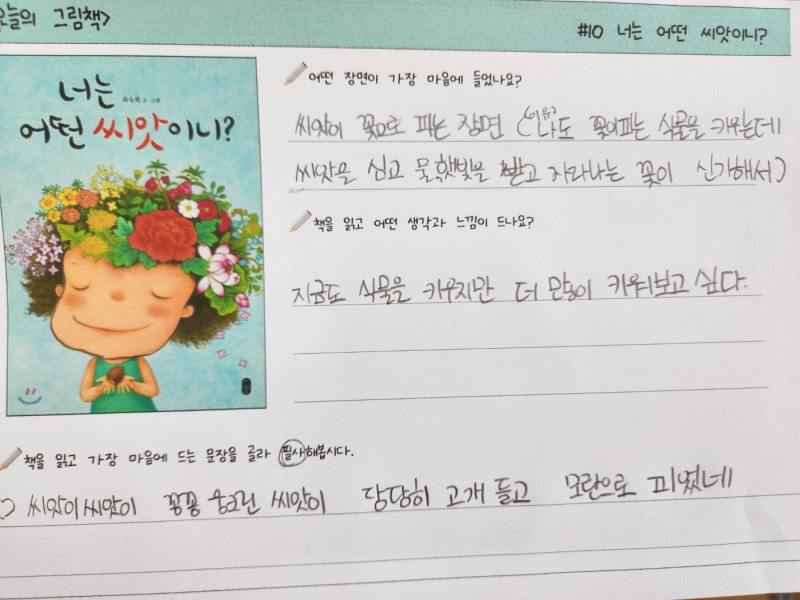 오늘의 그림책>
#10 너는 어떤 씨앗이니?
너는
어떤 씨앗이니?
최숙희 글·그림
어떤 장면이 가장 마음에 들었나요?
씨앗이 꽃으로 피는 장면 (이유) 나도 꽃이피는 식물을 키우는데
씨앗을 심고 물,햇빛을 받고 자라나는 꽃이 신기해서)
책을 읽고 어떤 생각과 느낌이 드나요?
지금도 식물을 키우지만 더 많이 키워보고 싶다.
책을 읽고 가장 마음에 드는 문장을 골라 필사해봅시다.
씨앗이 씨앗이 꽁꽁 웅크린 씨앗이 당당히 고개 들고 모란으로 피었네